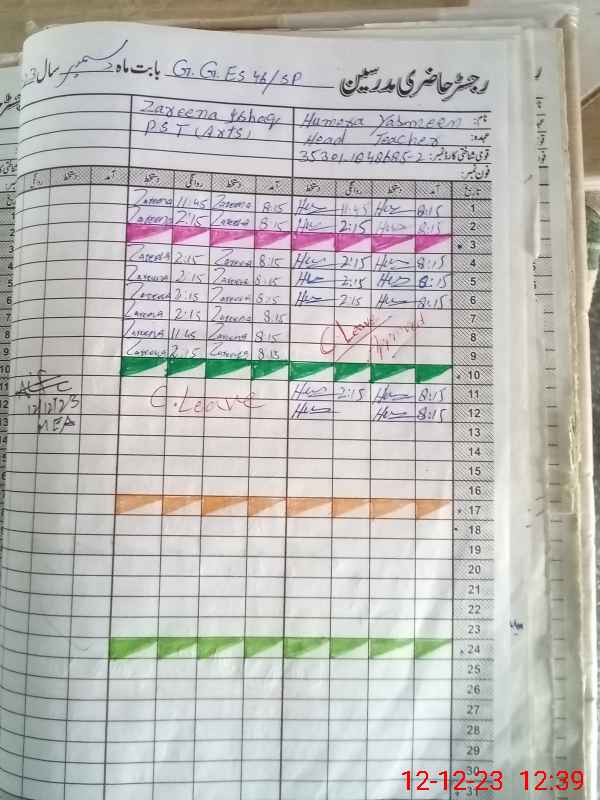 رجسٹر حاضری مدرسین G.G.ES 46/SP بابت ماہ دسمبر سال
نام: Humera Yasmeen Zareena Ishaq
عہدہ: Head Teacher PST (Arts)
قومی شناختی کارڈ نمبر:
فون نمبر:
تاریخ آمد دستخط روانگی دستخط آمد دستخط روانگی دستخط آمد دستخط روانگی
1 8:15 11:45 8:15 Zareena 11:45 Zareena
2 8:15 2:15 8:15 Zareena 2:15 Zareena
3
4 8:15 2:15 8:15 Zareena 2:15 Zareena
5 8:15 2:15 8:15 Zareena 2:15 Zareena
6 8:15 2:15 8:15 Zareena 2:15 Zareena
7 C.Leave 8:15 Zareena 2:15 Zareena
8 Approved 8:15 Zareena 11:45 Zareena
9 8:15 Zareena 2:15 Zareena
10
11 8:15 2:15 C.Leave
12 8:15 12/12/23
13 MEA
14
15
16
17
18
19
20
21
22
23
24
25
26
27
28
29
30
31
12-12-23 12:39